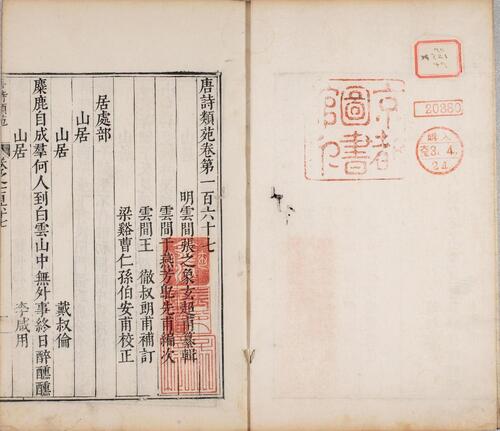 唐詩類苑卷第一百六十七
明雲間張之象玄超甫纂輯
雲間王 徹叔朗甫補訂
梁谿曹仁孫伯安甫校正
居處部
山居
山居 戴叔倫
麋鹿自成羣何人到白雲山中無外事終日醉醺醺
山居 李咸用
20860
3.4.
24